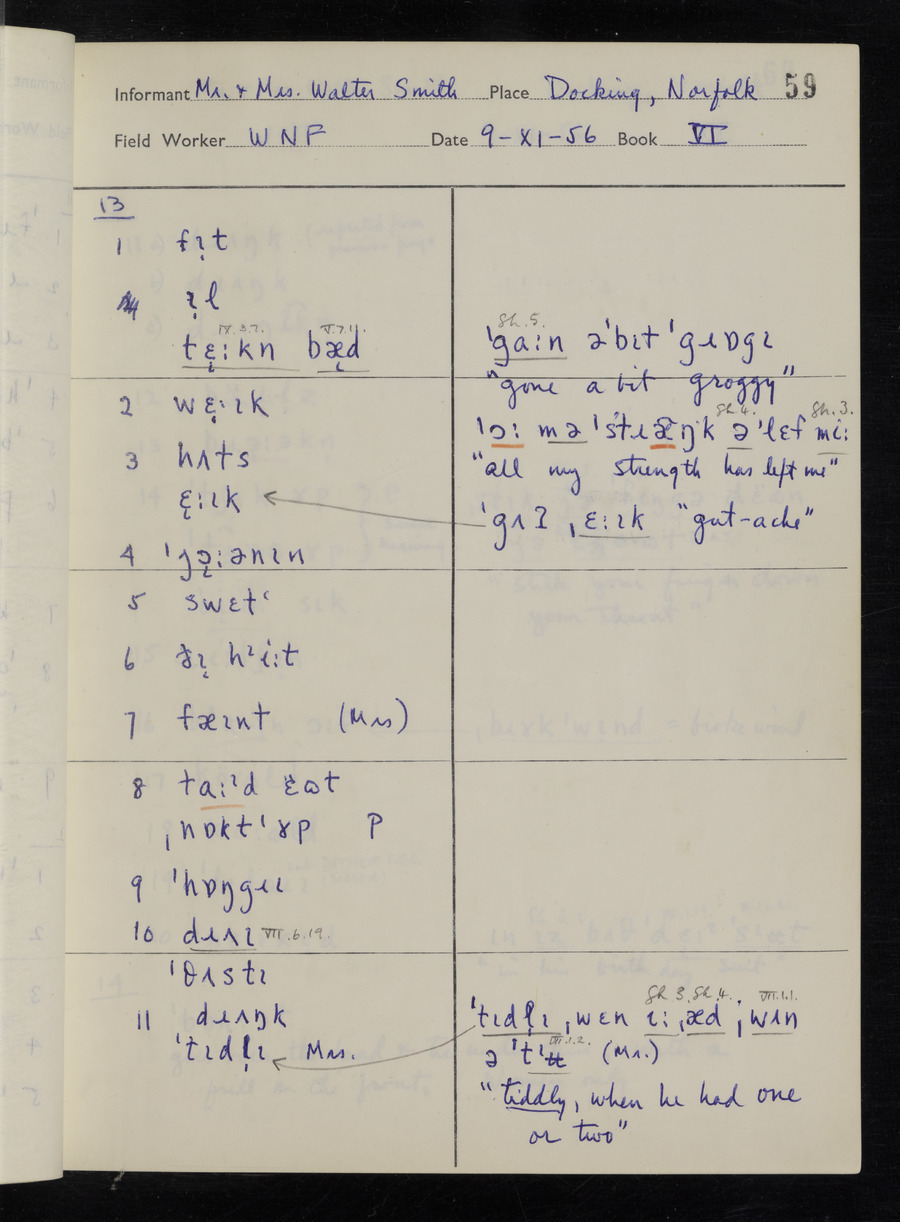 Informant Mr. & Mrs. Walter Smith Place Docking, Norfolk 59
Field Worker WNF Date 9-XI-56 Book VI
13
1 fɪ̞t
ɪ̞l
IX.3.7. V.7.11.
tɛ̞ːkn bæ̞d
2 wɛ̞ːɪk
3 hʌts
ɛ̞ːɪk
4 ˈjɔ̞ːənɪn
5 swɛtʿ
6 hᶦiːt
7 fæɪnt (Mrs)
8 taːᶦd ɛ̈ɷt
ˌnɒktˈɤp P
9 ˈhɒŋgɹɪ
10 dɹʌɪ VII.6.19.
ˈθʌstɪ
11 dɹʌŋk
ˈtɪdl̩ɪ Mrs.
Sh.5.
ˈgaːn əˈbɪt ˈgɹɒgɪ
"gone a bit groggy"
Sh.4. Sh.3.
ˈɔː mə ˈstɹæŋk ə ˈlɛf miː
"all my strength has left me"
ˈgʌʔ ˌɛːɪk "gut-ache"
Sh.3. Sh.4. VII.1.1.
ˈtɪdl̩ɪ ˌwɛn ɪː ˌæd ˌwʌn
VII.1.2.
ə (Mr.)
"tiddly, when he had one
or two"